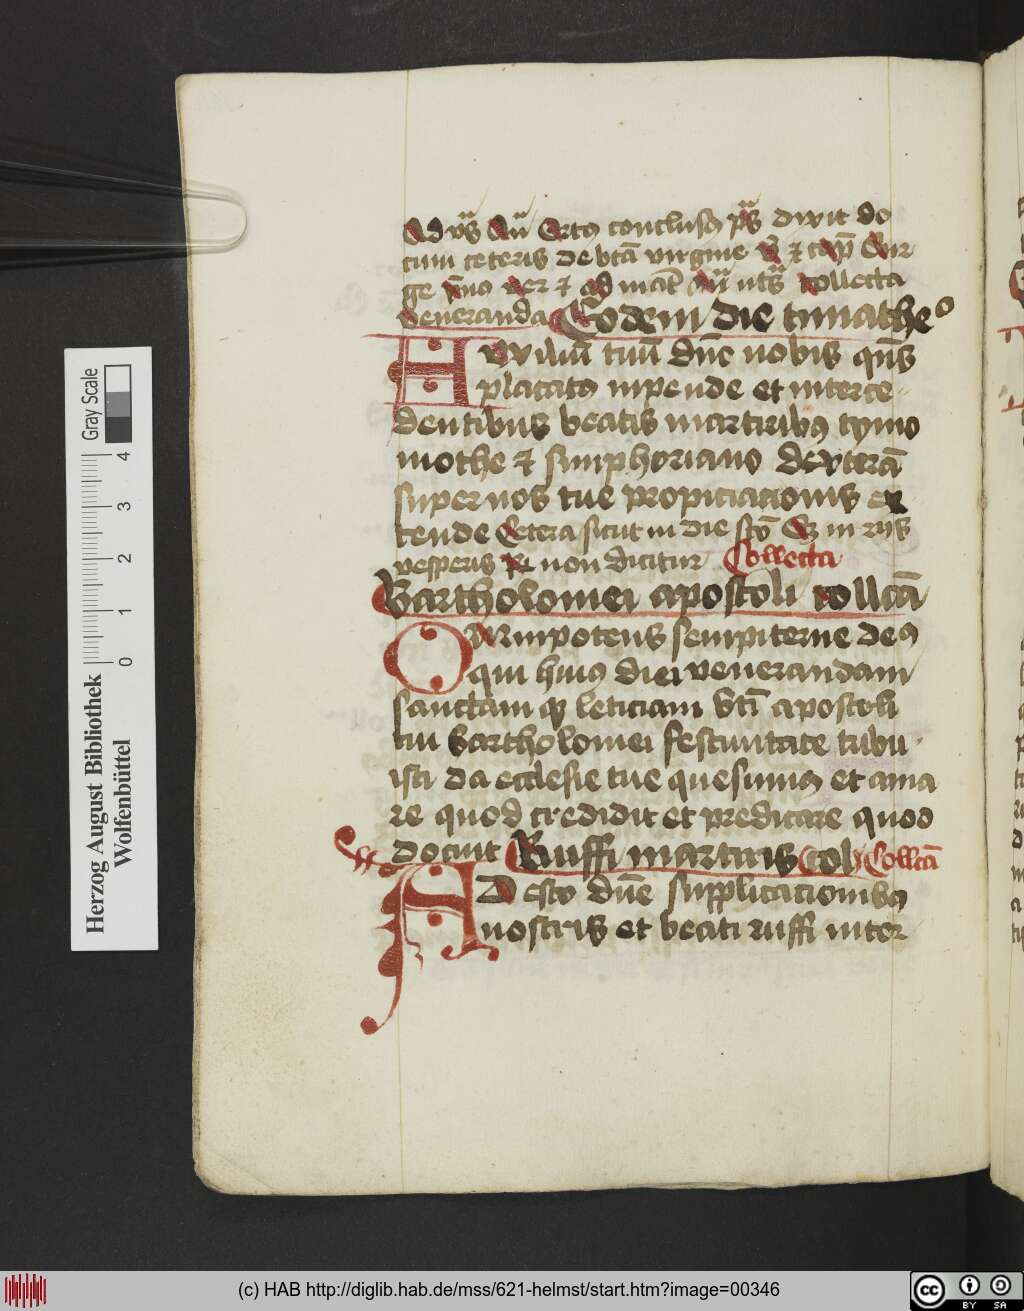 Ad vs̄ an̄ Ortus conclusus ps̄ dixit do
cum ceteris de btā virgine v̄ et cap̄ Sur
ge
collecta
veneranda Eodem die timotheo
Auxiliū tuū dn̄e nobis qn̄s
placatus inpende et interce
dentibus beatis martiribus tymo
mothe et simphoriano dexterā
super nos tue propiciacionis ex
tende Cetera sicut in die scō in
vesperis non dicitur Collecta
Bartholomei apostoli collcā
Omnipotens sempiterne deus
qui huius diei venerandam
sanctam qz leticiam bti apostoli
tui bartholomei festiuitate tribu
isti da ecclesie tue quesumus et ama
re quod credidit et predicare quod
docuit Ruffi martiris Col Collcā
Adesto dn̄e supplicationibus
nostris et beati ruffi inter
Herzog August Bibliothek
Wolfenbüttel
Gray Scale
0 1 2 3 4
(c) HAB http://diglib.hab.de/mss/621-helmst/start.htm?image=00346
cc BY SA